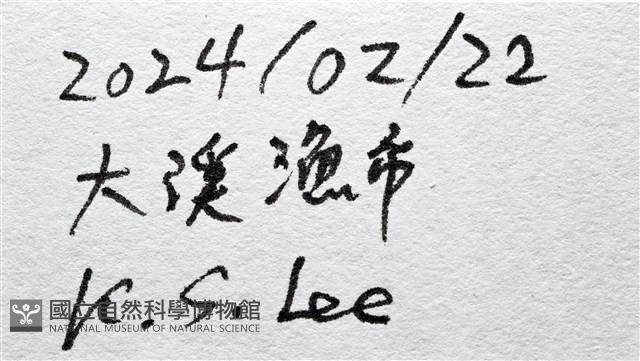 2024/02/22
大溪漁市
K.S. Lee
國立自然科學博物館
NATIONAL MUSEUM OF NATURAL SCIENCE